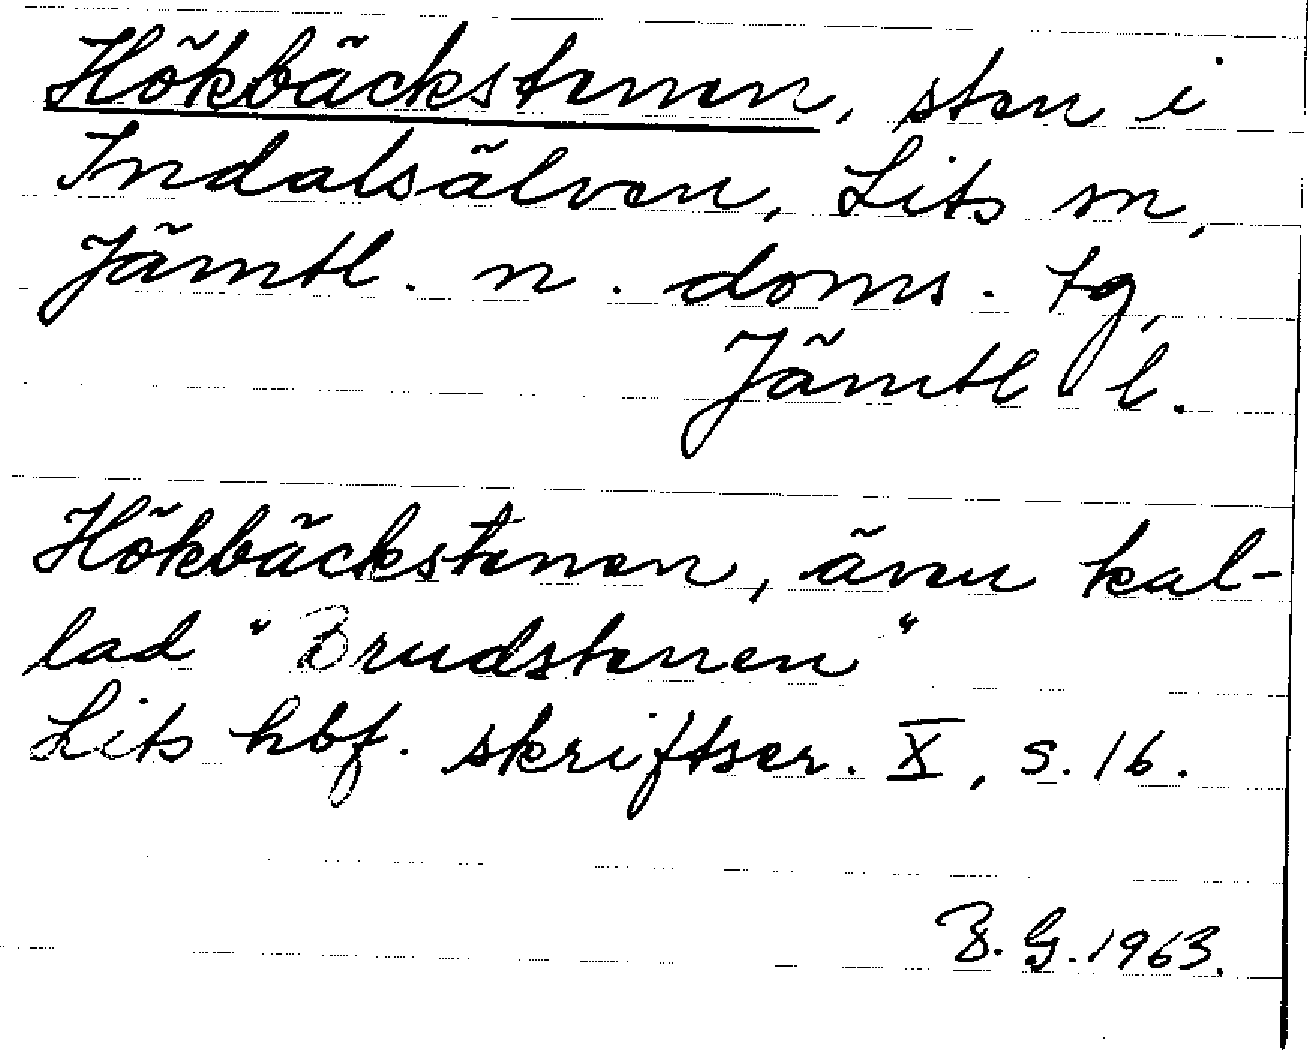 Hökbäckstenen, sten i
Indalsälven, Lits sn,
Jämtl. n. doms. tg,
Jämtl l.
Hökbäckstenen, även kal-
lad "Brudstenen"
Lits hbf. skriftser. X, s. 16.
B. G. 1963.